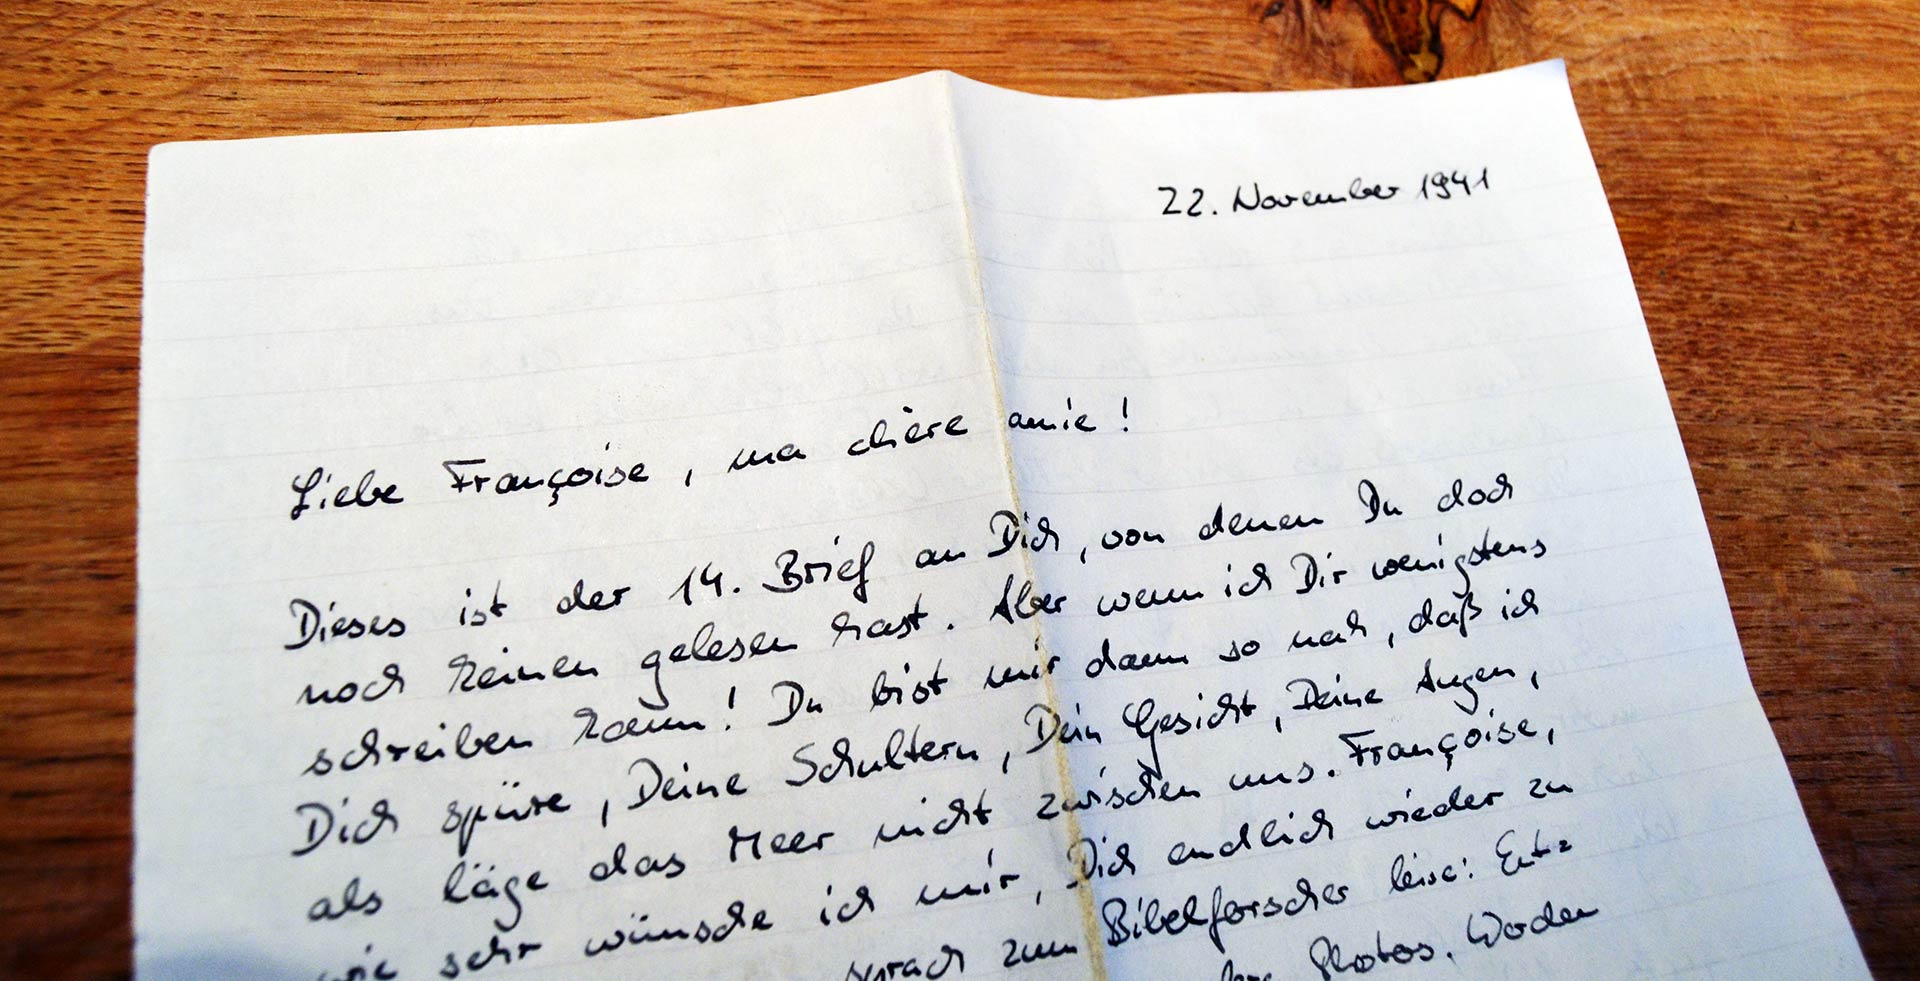 22. November 1941
Liebe Françoise, ma chère amie!
Dieses ist der 14. Brief an Dich, von denen Du doch
noch keinen gelesen hast. Aber wenn ich Dir wenigstens
schreiben kann! Du bist mir dann so nah, daß ich
Dich spüre, Deine Schultern, Dein Gesicht, Deine Augen,
als läge das Meer nicht zwischen uns. Françoise,
wie sehr wünsche ich mir, Dich endlich wieder zu
sprach zum Bibelforscher leise: Ent=
Photos. Woden